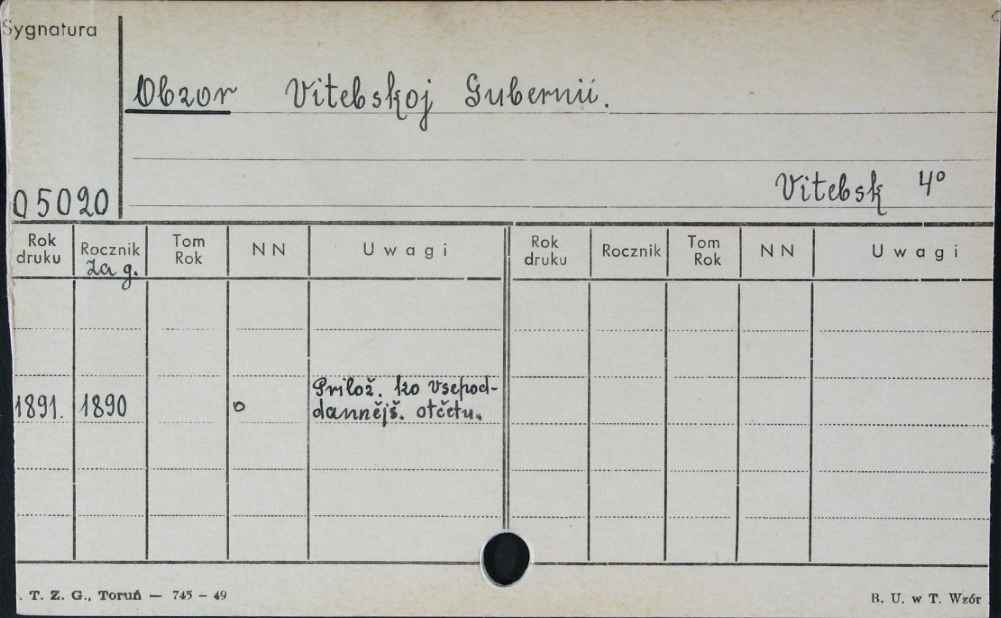 Sygnatura
Obzor Vitebskoj Gubernii.
Vitebsk 4°
05020
Rok druku Rocznik za g. Tom Rok NN Uwagi Rok druku Rocznik Tom Rok NN Uwagi
Prilož. ko vsepod-
1891. 1890 o dannějš. otčetu.
. T. Z. G., Toruń — 745 – 49 B. U. w T. Wzór